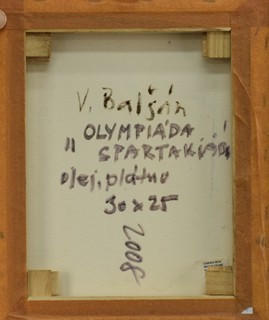 V. Balšán
OLYMPIÁDA
" SPARTAKIÁDA
olej, plátno
30 x 25
2008